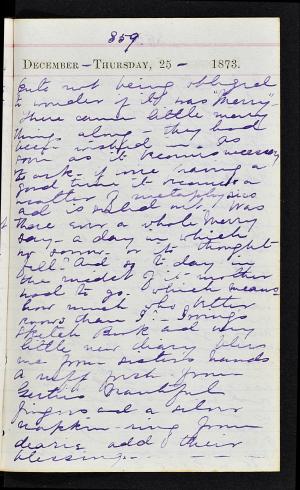 359.
DECEMBER - THURSDAY, 25 - 1873.
not being obliged
to wonder if it was "Merry" -
there came little merry
things along - they had
been wished in. As
soon as it becomes necessary
to ask - if one is having a
good time it becomes a
matter of metaphysics
and is sailed. Was
there ever a whole Merry
day - a day in which
no sorrow or thought
fell? And so to day in
the midst of it mother
had to go. Which means
how much who better
knows than I. Irving's
Sketch Book and my
little new diary bless
me from sister's hands
a ruff fresh from
Gertie's beautiful
fingers and a silver
napkin-ring from
dearie add their
blessing -